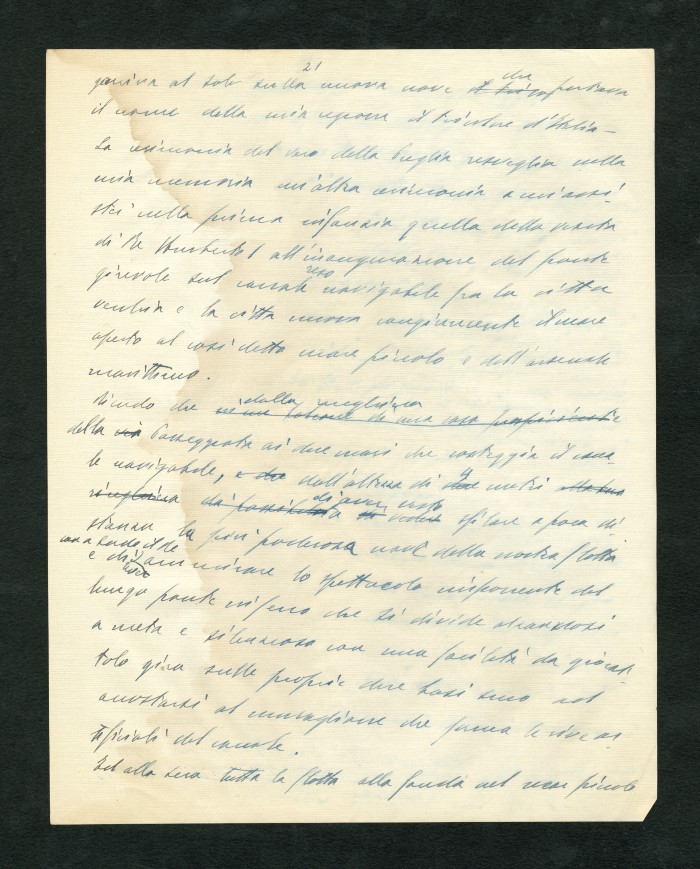 21
al sole sulla nuova nave che portava
il nome della mia regione il tricolore d'Italia –
La cerimonia del varo della Puglia risveglia nella
mia memoria un'altra cerimonia a cui assi
stei nella prima infanzia quella della venuta
di Re Umberto I all'inaugurazione del ponte
girevole sul canale reso navigabile fra la città
vecchia e la città nuova congiungente il mare
aperto al così detto mare piccolo e dell'arsenale
marittimo.
Ricordo che dalla ringhiera
della via Passeggiata ai due mari che costeggia il cana
le navigabile, e dall'altezza di metri
di aver visto sfilare a poca di
stanza la più poderosa nave della nostra flotta
con a bordo il Re
e di ammirare lo spettacolo imponente del
lungo ponte in ferro che si divide
a metà e silenzioso con una facilità da giocat
tolo gira sulle proprie due basi sino ad
accostarsi al muraglione che forma le rive ar
tificiali del canale.
Ed alla sera tutta la flotta alla fonda nel mar piccolo